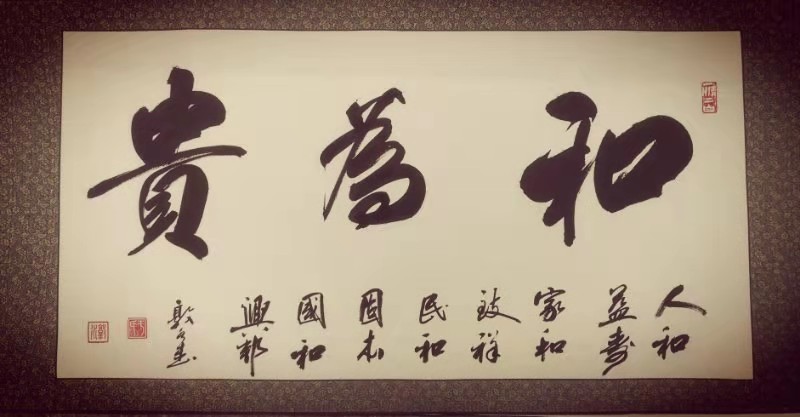 和為貴
人和
益壽
家和
致祥
民和
固本
國和
興邦